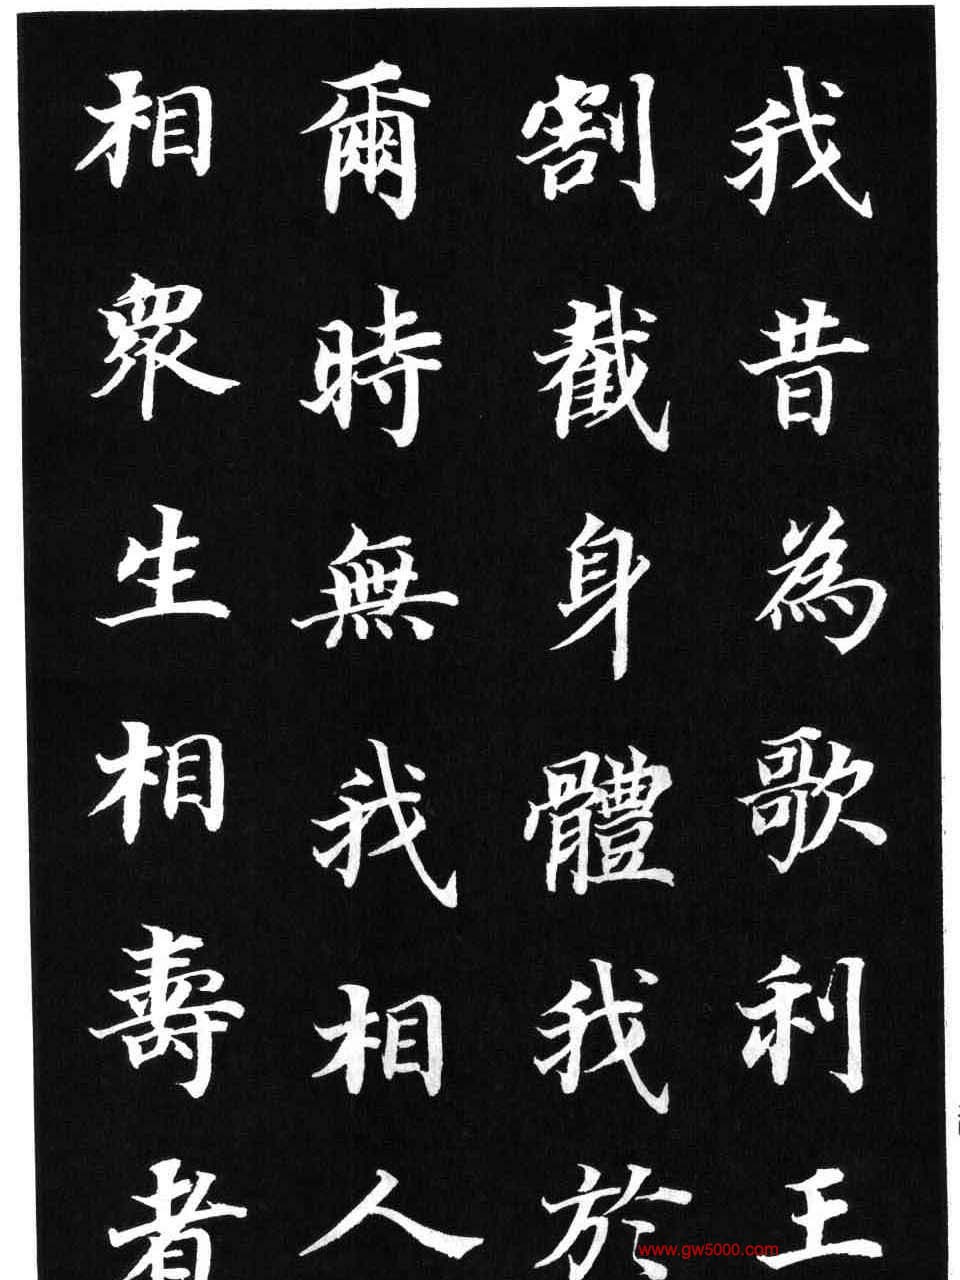 我昔為歌利王
割截身體我於
爾時無我相人
相眾生相壽者
www.gw5000.com